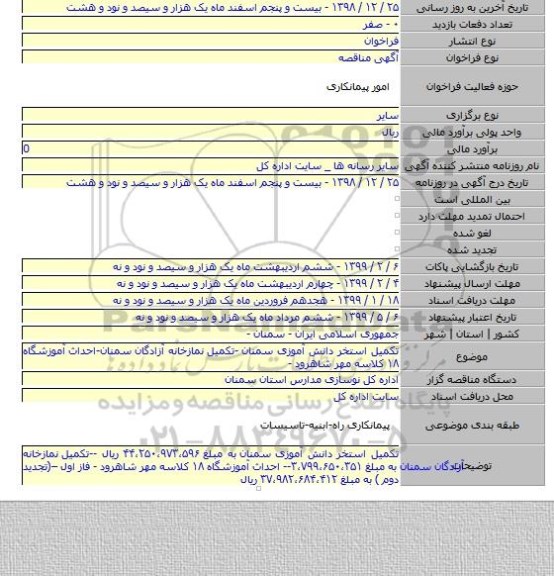 تاریخ آخرین به روز رسانی ۲۵ / ۱۲ / ۱۳۹۸ - بیست و پنجم اسفند ماه یک هزار و سیصد و نود و هشت
تعداد دفعات بازدید ۰ - صفر
نوع انتشار فراخوان
نوع فراخوان آگهی مناقصه
حوزه فعالیت فراخوان امور پیمانکاری
نوع برگزاری سایر
واحد پولی برآورد مالی ریال
برآورد مالی 0
نام روزنامه منتشر کننده آگهی سایر رسانه ها _ سایت اداره کل
تاریخ درج آگهی در روزنامه ۲۵ / ۱۲ / ۱۳۹۸ - بیست و پنجم اسفند ماه یک هزار و سیصد و نود و هشت
بین المللی است
احتمال تمدید مهلت دارد
لغو شده
تجدید شده
تاریخ بازگشایی پاکات ۶ / ۲ / ۱۳۹۹ - ششم اردیبهشت ماه یک هزار و سیصد و نود و نه
مهلت ارسال پیشنهاد ۴ / ۲ / ۱۳۹۹ - چهارم اردیبهشت ماه یک هزار و سیصد و نود و نه
مهلت دریافت اسناد ۱۸ / ۱ / ۱۳۹۹ - هجدهم فروردین ماه یک هزار و سیصد و نود و نه
تاریخ اعتبار پیشنهاد ۶ / ۵ / ۱۳۹۹ - ششم مرداد ماه یک هزار و سیصد و نود و نه
کشور | استان | شهر جمهوری اسلامی ایران - سمنان -
موضوع تکمیل استخر دانش آموزی سمنان -تکمیل نمازخانه آزادگان سمنان-احداث آموزشگاه
۱۸ کلاسه مهر شاهرود -
دستگاه مناقصه گزار اداره کل نوسازی مدارس استان سمنان
محل دریافت اسناد سایت اداره کل
پایگاه اطلاع رسانی مناقصه و مزایده
طبقه بندی موضوعی پیمانکاری راه-ابنیه-تاسیسات
۰۲۱-۸۸۳۴۹۶۷۰-۵
تکمیل استخر دانش آموزی سمنان به مبلغ ۴۴،۲۵۰،۹۷۳،۵۹۶ ریال --تکمیل نمازخانه
توضیحات آزادگان سمنان به مبلغ ۳،۷۹۹،۶۵۰،۳۵۱-- احداث آموزشگاه ۱۸ کلاسه مهر شاهرود - فاز اول –(تجدید
دوم ) به مبلغ ۳۷،۹۸۲،۶۸۴،۴۱۲ ریال